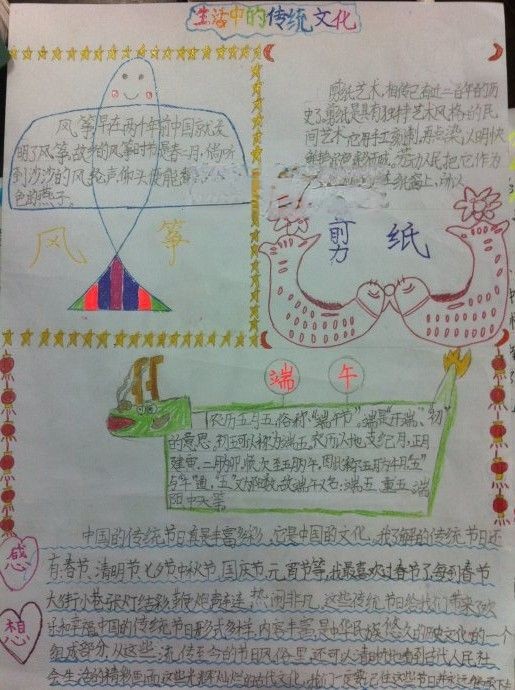 生活中的传统文化
风筝早在两千年前中国就发
明了风筝,故乡的风筝时节是春二月,倘听
到沙沙的风轮声,仰头便能看
色的燕子。
风筝
剪纸艺术,相传已有近二百年的历
史了剪纸是具有独特艺术风格的民
间艺术它用手工刻制,再点染,以明快
鲜艳的色彩形成,劳动人民把它作为
纸窗上,
剪纸
端午
农历五月五,俗称"端午节",端是"开端"、"初"
的意思,初五可以称为端五,农历以地支纪月,正月
建寅,二月为卯,顺次至五月为午,因此称五月为午月,"五"
与"午"通,"五"又为阳数,故端午又名:端五、重五、端
阳、中天等。
感想
中国的传统节日真是丰富多彩,它是中国的文化,我了解的传统节日还
有:春节、清明节、七夕节、中秋节、国庆节、元宵节等,我最喜欢过春节了,每到春节
大街小巷张灯结彩,鞭炮声连连,热闹非凡,这些传统节日给我们带来了欢
乐和幸福,中国的传统节日形式多样,内容丰富,是中华民族悠久的历史文化的一个
组成部分,从这些流传至今的节日风俗里,还可以清晰地看到古代人民社
会生活的精彩画面,这些光辉灿烂的古代文化,我们一定要记住这些节日并永远